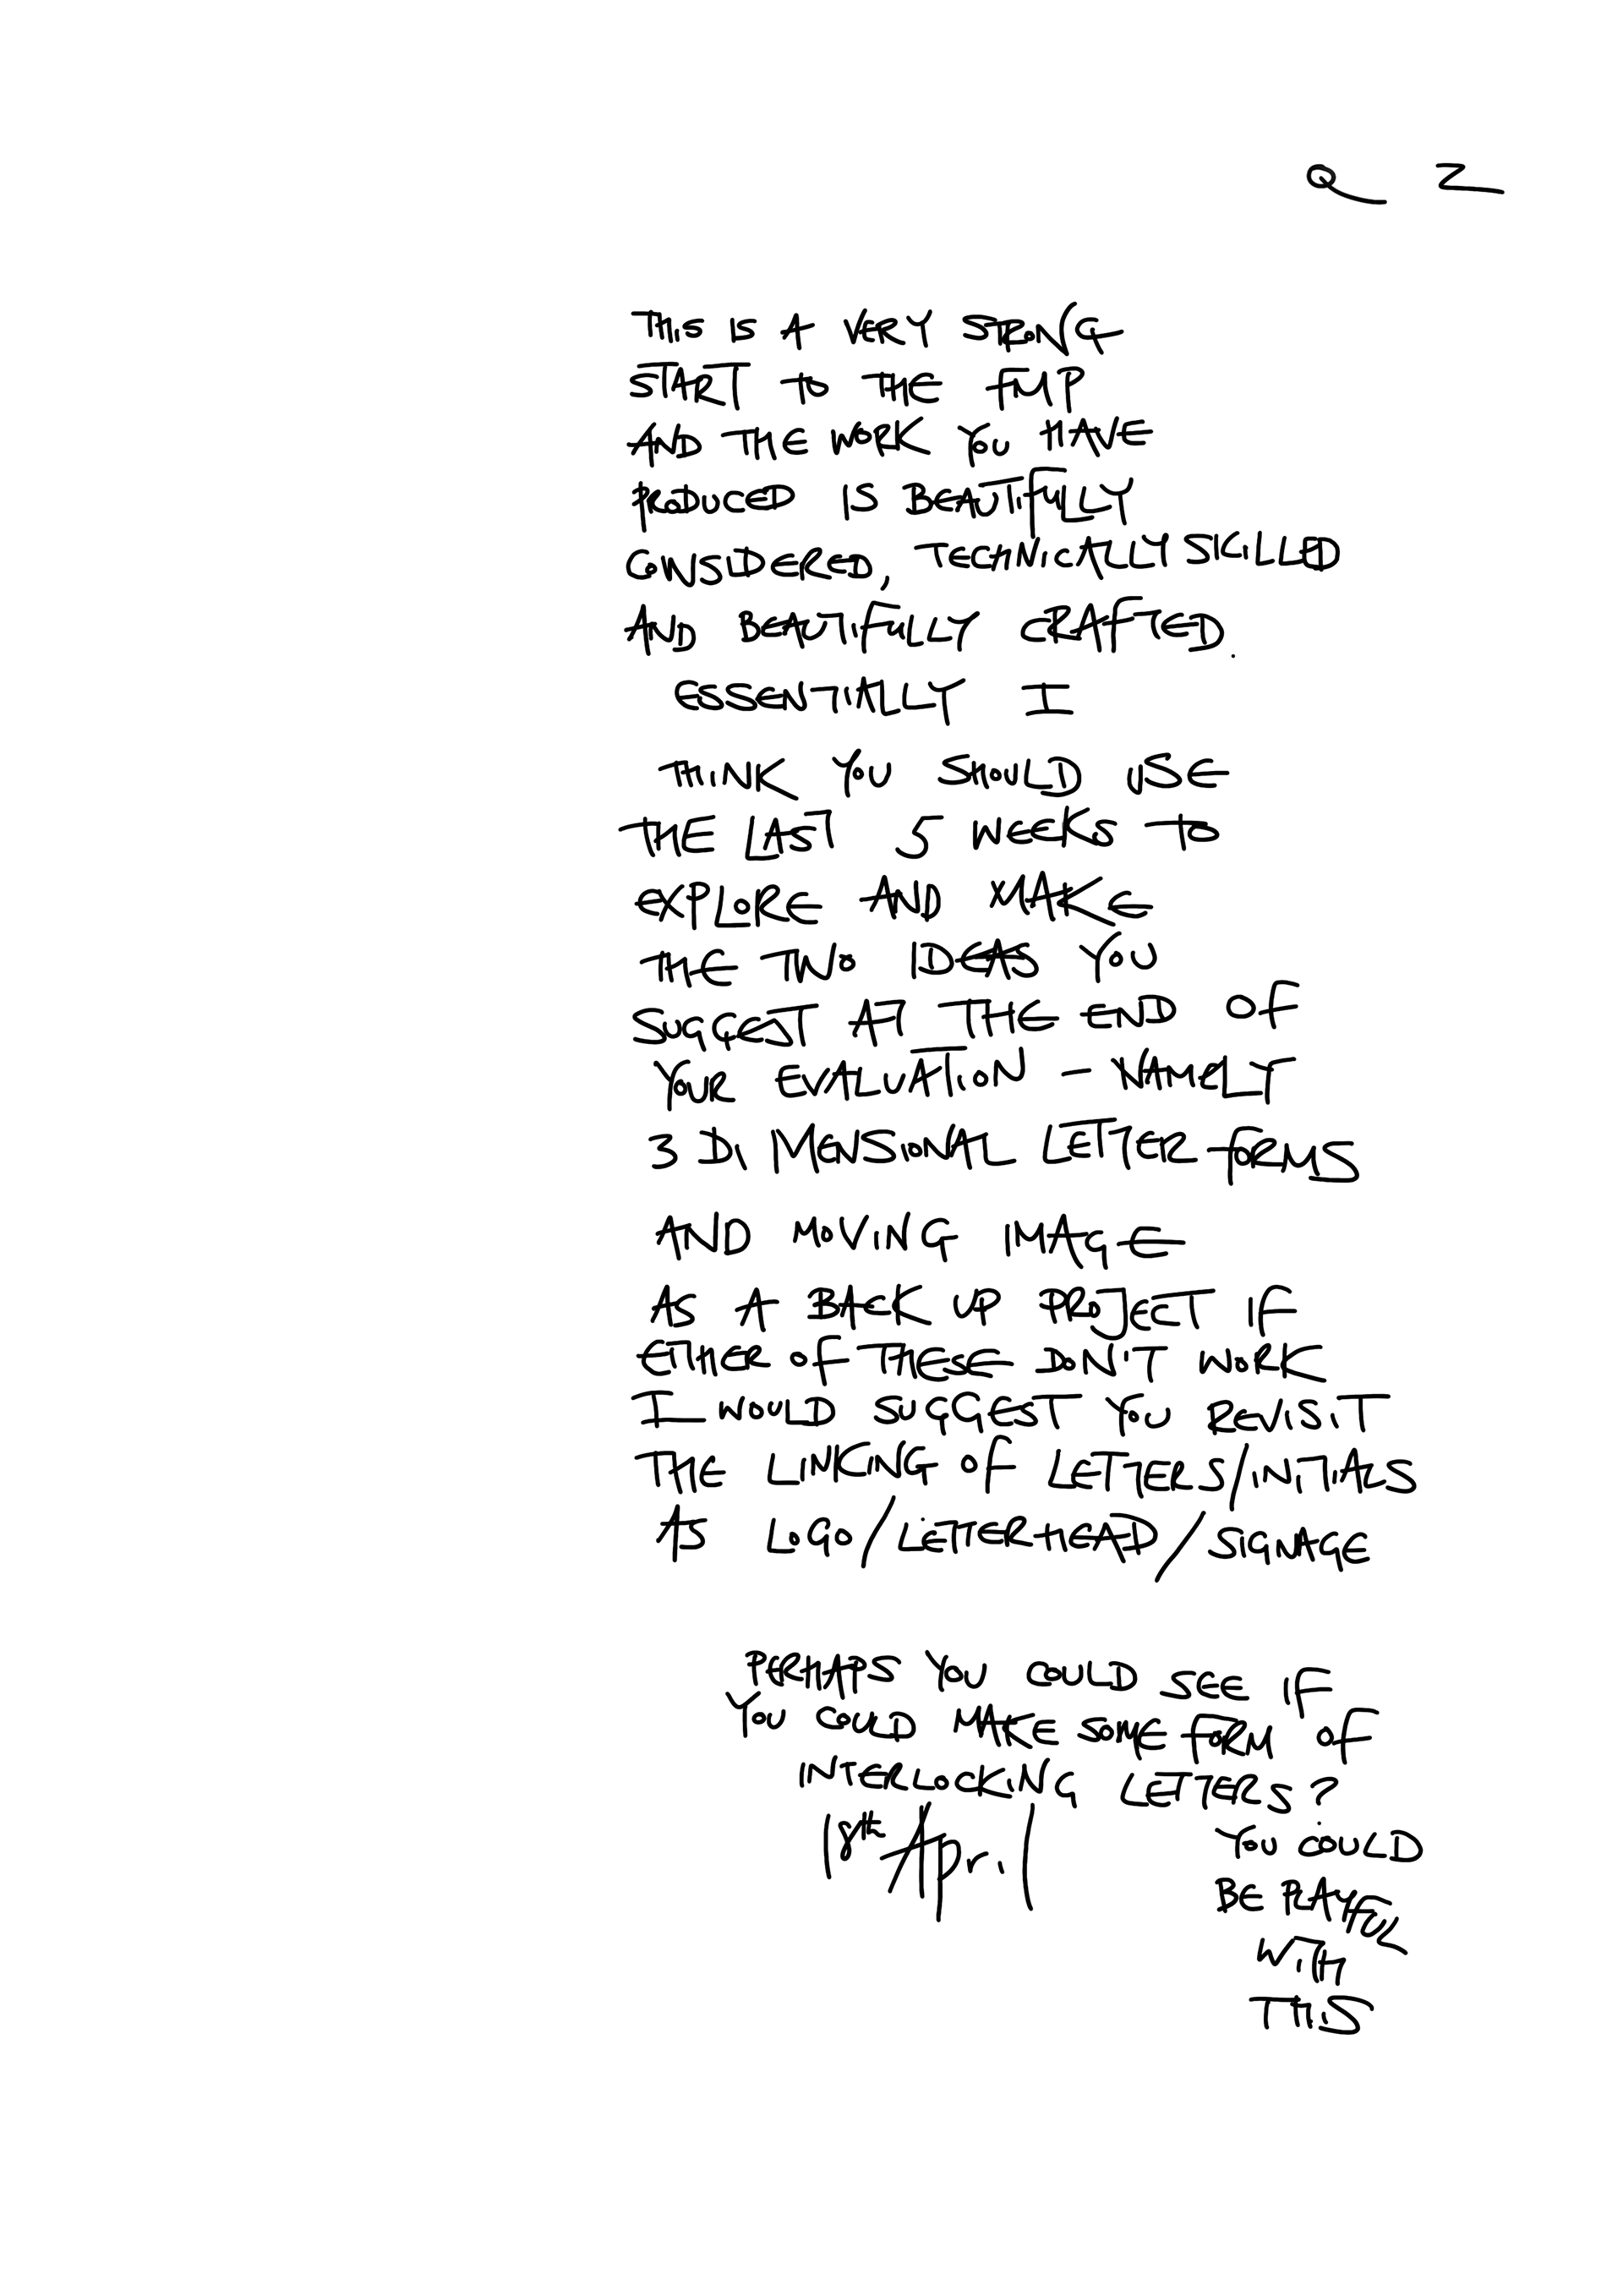 Q 2
THIS IS A VERY STRONG
START TO THE FMP
AND THE WORK YOU HAVE
PRODUCED IS BEAUTIFULLY
CONSIDERED, TECHNICALLY SKILLED
AND BEAUTIFULLY CRAFTED.
ESSENTIALLY I
THINK YOU SHOULD USE
THE LAST 5 WEEKS TO
EXPLORE AND MAKE
THE TWO IDEAS YOU
SUGGEST AT THE END OF
YOUR EVALUATION - NAMELY
3 DIMENSIONAL LETTER FORMS
AND MOVING IMAGE
AS A BACK UP PROJECT IF
EITHER OF THESE DON'T WORK
I WOULD SUGGEST YOU REVISIT
THE LINKING OF LETTERS/INITIALS
AS LOGO/LETTERHEAD/SIGNAGE
PERHAPS YOU COULD SEE IF
YOU COULD MAKE SOME FORM OF
INTERLOCKING LETTERS?
18th April
YOU COULD
BE PLAYFUL
WITH
THIS